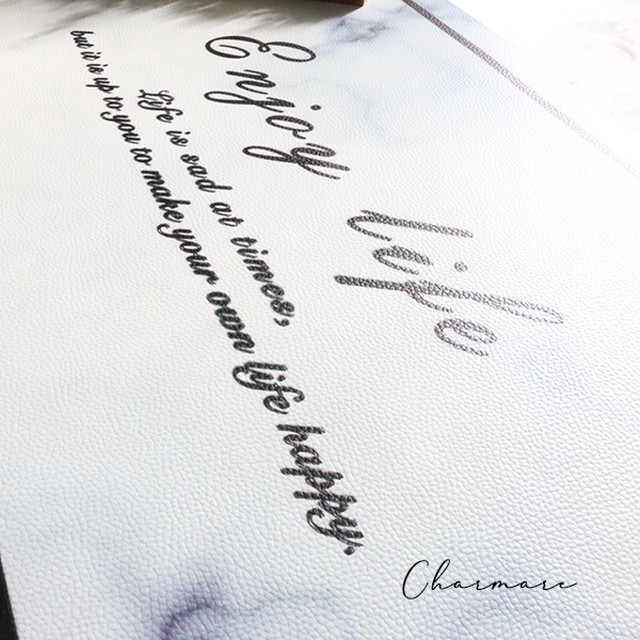 Enjoy life
Life is sad at times,
but it is up to you to make your own life happy.
Charmare